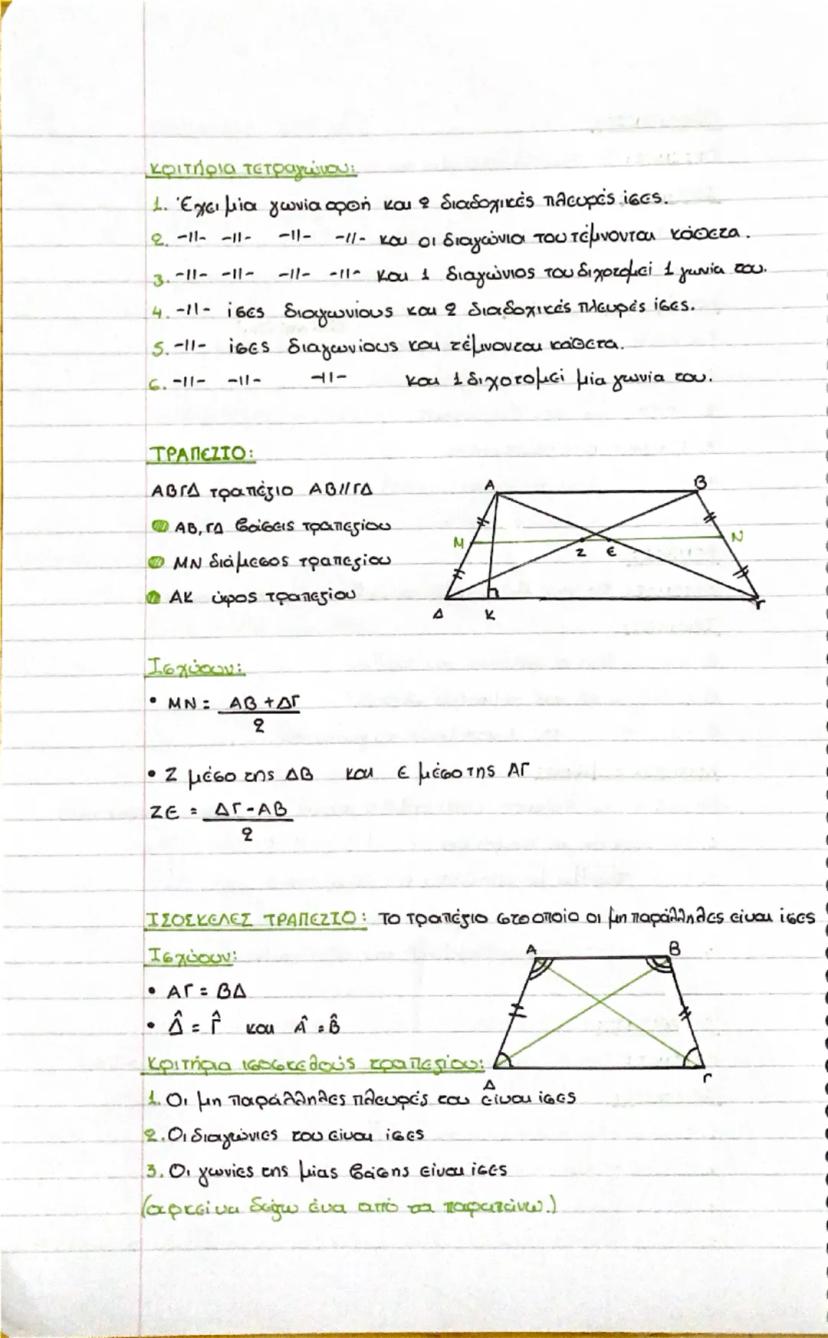 Κριτήρια τετραγώνου:
1. Έχει μία γωνία ορθή και 2 διαδοχικές πλευρές ίσες.
2. -||- -||- -||- -||- και οι διαγώνιοι του τέμνονται κάθετα.
3. -||- -||- -||- -||- και 1 διαγώνιος του διχοτομεί 1 γωνία του.
4. -||- ίσες διαγωνίους και 2 διαδοχικές πλευρές ίσες.
5. -||- ίσες διαγωνίους και τέμνονται κάθετα.
6. -||- -||- -||- και 1 διχοτομεί μία γωνία του.
ΤΡΑΠΕΖΙΟ:
ΑΒΓΔ τραπέζιο ΑΒ//ΓΔ
ΑΒ, ΓΔ βάσεις τραπεζίου
ΜΝ διάμεσος τραπεζίου
ΑΚ ύψος τραπεζίου
Α Β
Μ Ν
Ζ Ε
Δ Κ Γ
Ισχύουν:
• ΜΝ = ΑΒ + ΔΓ
2
• Ζ μέσο της ΔΒ και Ε μέσο της ΑΓ
ΖΕ = ΔΓ - ΑΒ
2
ΙΣΟΣΚΕΛΕΣ ΤΡΑΠΕΖΙΟ: Το τραπέζιο στο οποίο οι μη παράλληλες είναι ίσες
Ισχύουν:
Α Β
• ΑΓ = ΒΔ
• Δ̂ = Γ̂ και Α̂ = Β̂
Κριτήρια ισοσκελούς τραπεζίου:
Δ Γ
1. Οι μη παράλληλες πλευρές του είναι ίσες
2. Οι διαγώνιες του είναι ίσες
3. Οι γωνίες της μίας βάσης είναι ίσες
(αρκεί να δείξω ένα από τα παραπάνω.)